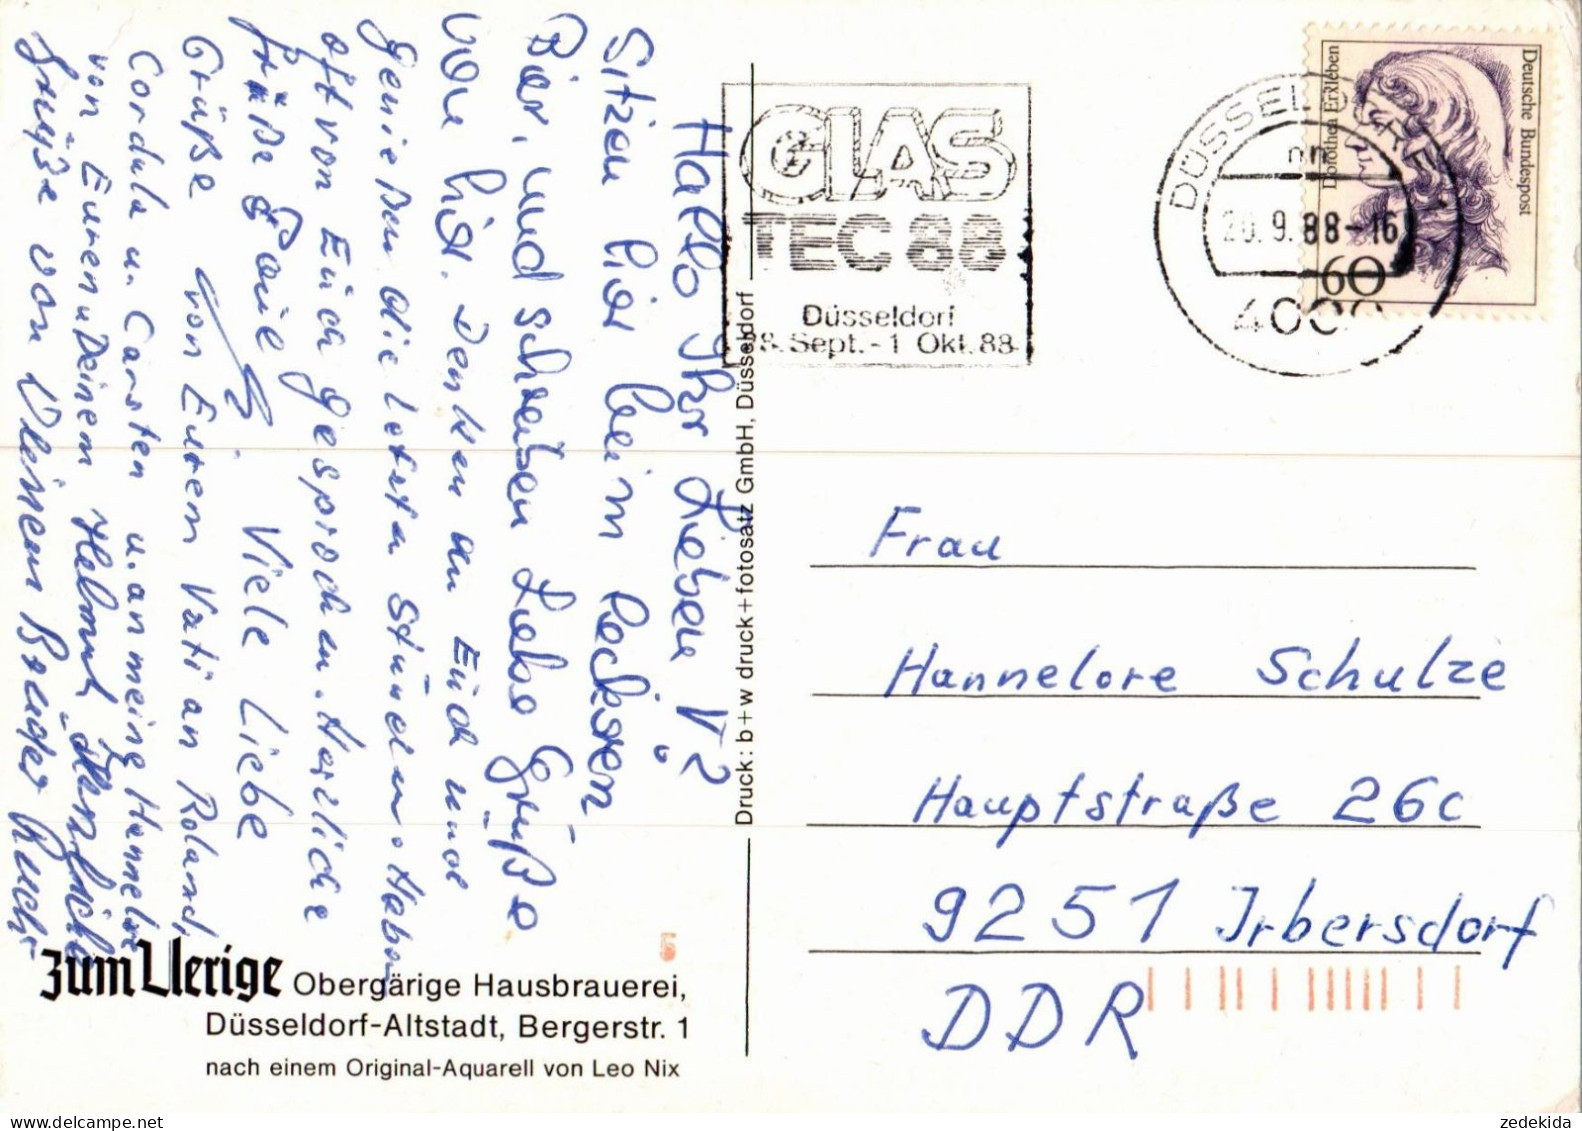 Hallo Ihr Lieben !
Sitzen hier beim leckren
Bier, und schreiben Liebe Grüße
von hier. Denken an Euch und
genießen die letzten Stunden. Haben
oft von Euch gesprochen. Herzliche
Grüße
Viele Liebe
Grüße von Eurem Vati an Roland,
Cordula u. Carsten u. an meine Hannelore
von Eurem u Deinem Helmut Herzliche
Grüße von Deinem Bruder
Zum Uerige Obergärige Hausbrauerei,
Düsseldorf-Altstadt, Bergerstr. 1
nach einem Original-Aquarell von Leo Nix
Druck: b+w druck+fotosatz GmbH, Düsseldorf
GLAS
TEC 88
Düsseldorf
8. Sept. - 1 Okt. 88
DÜSSELDORF
20.9.88-16
4000
Deutsche Bundespost
Dorothea Erxleben
60
Frau
Hannelore Schulze
Hauptstraße 26c
9251 Irbersdorf
DDR
5
www.delcampe.net
zedekida